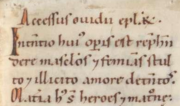 Accessus ovidii epl'ar̄.
Intentio hui' opus est rep̄hn
dere masc̄los & feminas stul
to & illicito amore detentos.
Matia h' s̄ heroes & matrone.